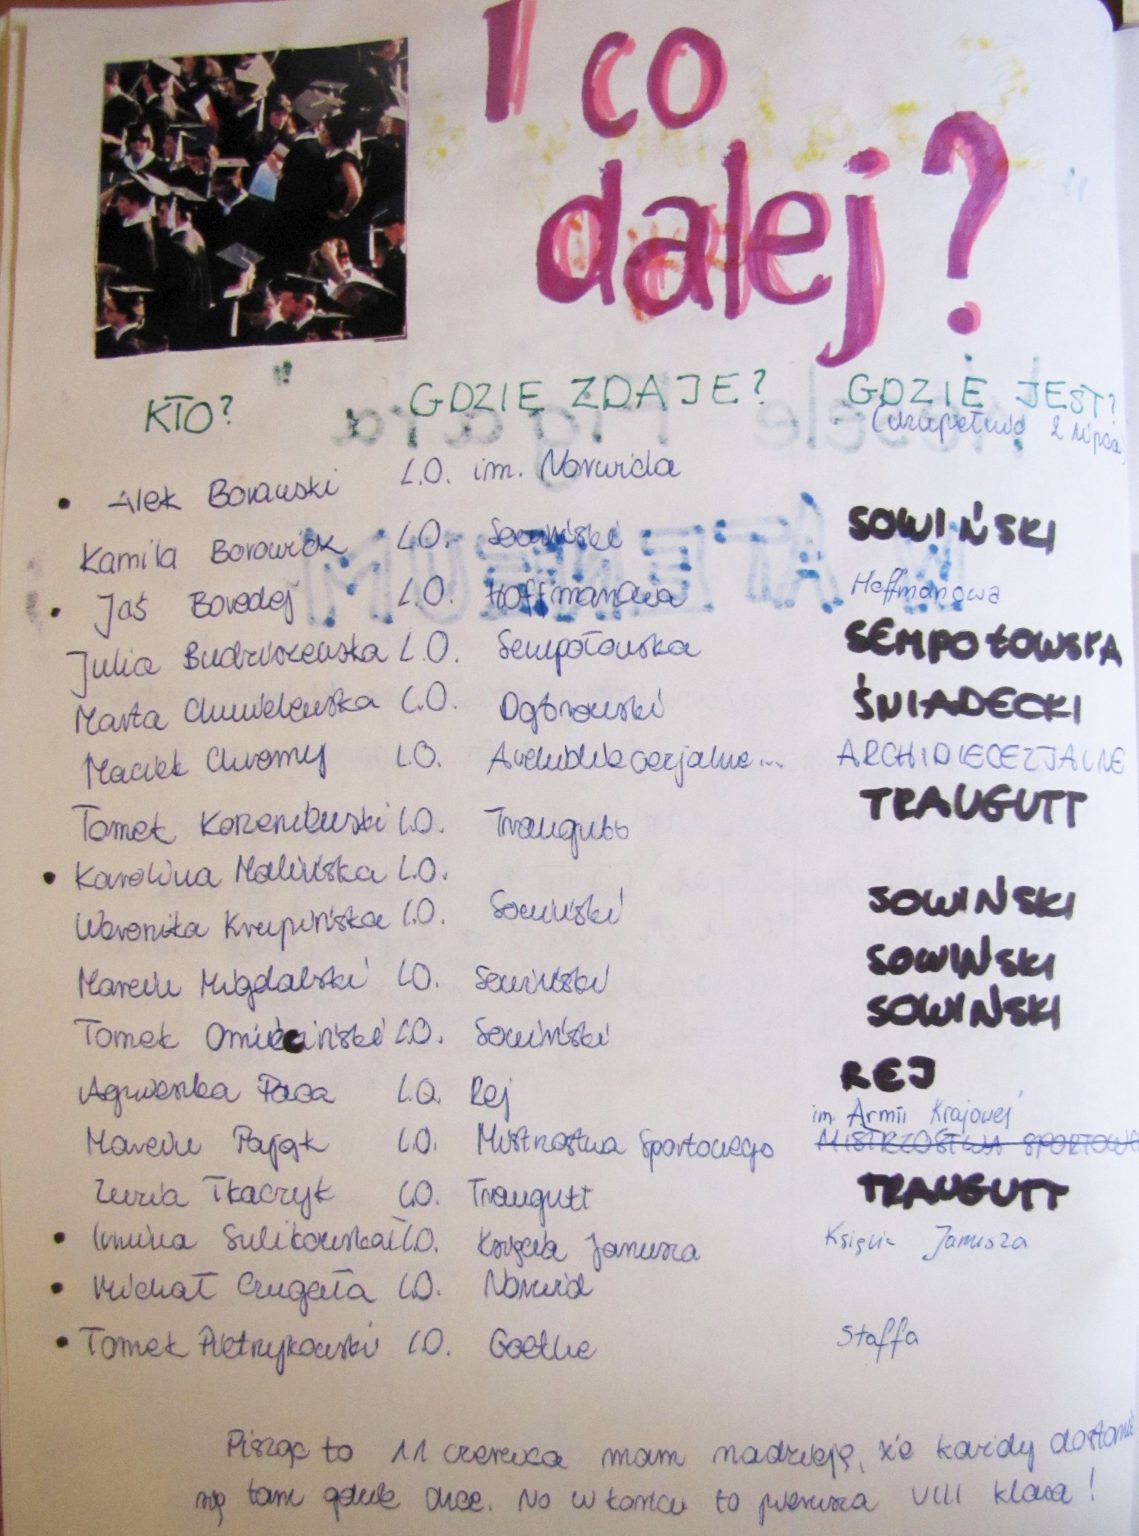 I co
dalej?
KTO? GDZIE ZDAJE? GDZIE JEST?
(uzupełnio 2 lipca)
• Alek Borawski L.O. im. Norwida
Kamila Borowick L.O. Sowiński SOWIŃSKI
• Jaś Boredej L.O. Hoffmanowa Hoffmanowa
Julia Budziszewska L.O. Sempołowska SEMPOŁOWSKA
Marta Chmielewska L.O. Dąbrowski ŚNIADECKI
Maciek Chromy L.O. ARCHIDIECEZJALNE
Tomek L.O. Traugutt TRAUGUTT
• Karolina Malińska L.O.
Weronika Krupińska L.O. Sowiński SOWIŃSKI
Marcin Migdalski L.O. Sowiński SOWIŃSKI
Tomek L.O. Sowiński SOWIŃSKI
Agnieszka Paca L.O. Rej REJ
im. Armii Krajowej
Marcin Pająk L.O. Mistrzostwa Sportowego MISTRZOSTWA SPORTOWE
Zuzia Tkaczyk L.O. Traugutt TRAUGUTT
• Sulikowska L.O. Księcia Janusza Księcia Janusza
• Michał Czugała L.O. Norwid
• Tomek Pietrzykowski L.O. Goethe Staffa
Pisząc to 11 czerwca mam nadzieję, że każdy dostanie
się tam gdzie chce. No w końcu to pierwsza VIII klasa!